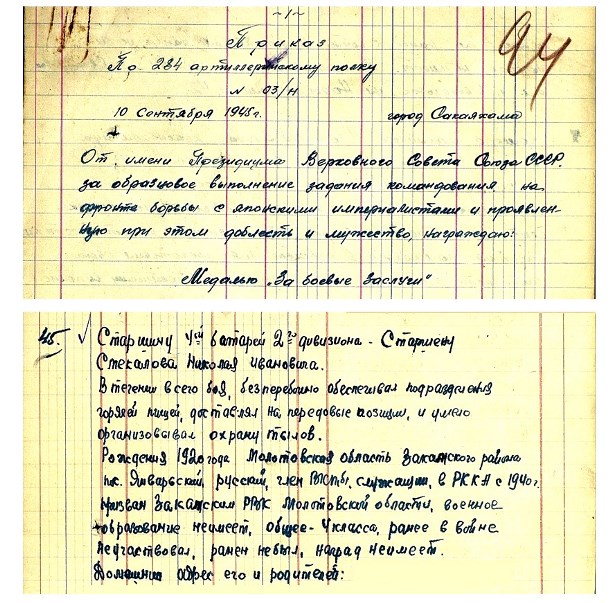 ~1~
94
Приказ
По 284 артиллерийскому полку
№ 03/н
10 Сентября 1945г. город Сакаяхама
От имени Президиума Верховного Совета Союза СССР.
за образцовое выполнение задания командования на
фронте борьбы с японскими империалистами и проявлен-
ную при этом доблесть и мужество, награждаю:
Медалью „За боевые заслуги"
45. √ Старшину 4ой батареи 2го дивизиона - Старшину
Стекалова Николая Ивановича.
В течении всего боя, бесперебойно обеспечивал подразделения
горячей пищей, доставлял на передовые позиции, и умело
организовывал охрану тылов.
Рождения 1920 года Молотовская область Закамского района
пос. Январьский, русский, член служащий, в РККА с 1940г.
Призван Закамским РВК Молотовской области, военное
образование неимеет, общее - 4 класса, ранее в войне
неучаствовал, ранен небыл, наград неимеет.
Домашний адрес его и родителей: